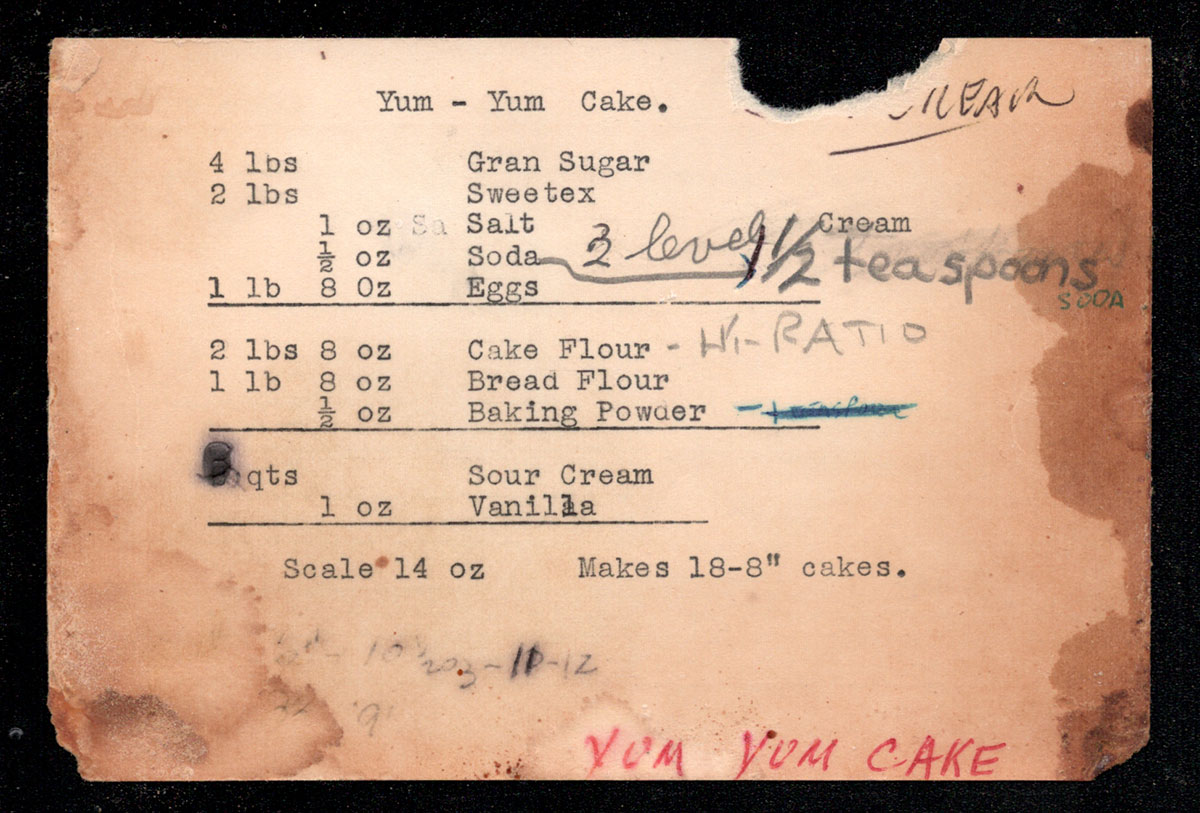 Yum - Yum Cake.
4 lbs Gran Sugar
2 lbs Sweetex
1 oz Sa Salt Cream
½ oz Soda 2 level 1 1/2 teaspoons
SODA
1 lb 8 Oz Eggs
2 lbs 8 oz Cake Flour - HI-RATIO
1 lb 8 oz Bread Flour
½ oz Baking Powder -
qts Sour Cream
1 oz Vanilla
Scale 14 oz Makes 18-8" cakes.
-11-12
YUM YUM CAKE